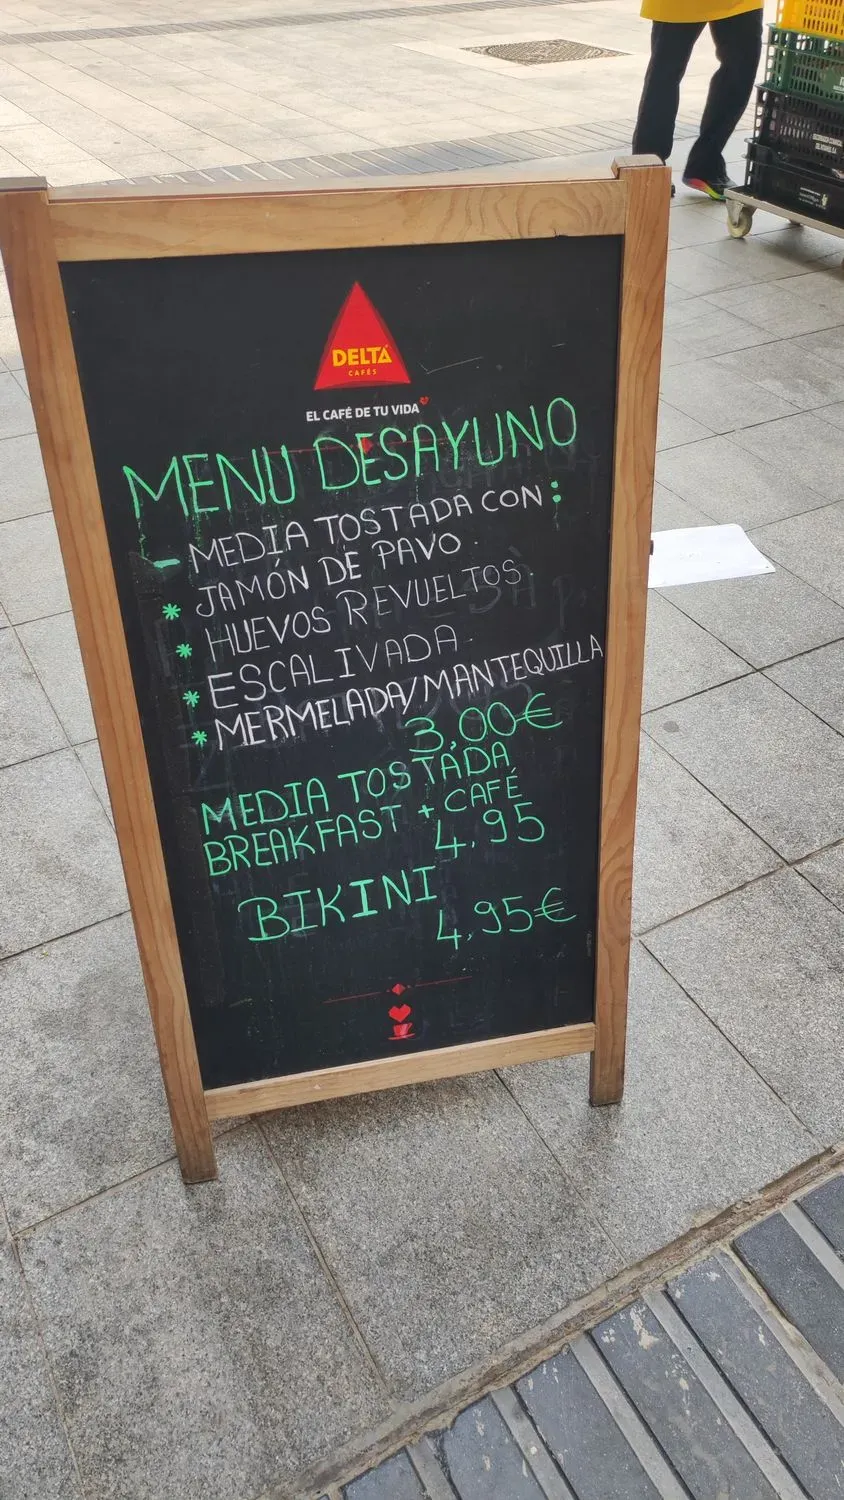 DELTA
CAFÉS
EL CAFÉ DE TU VIDA
MENU DESAYUNO
- MEDIA TOSTADA CON:
* JAMÓN DE PAVO.
* HUEVOS REVUELTOS.
* ESCALIVADA.
* MERMELADA/MANTEQUILLA
3,00€
MEDIA TOSTADA
BREAKFAST + CAFÉ
4.95
BIKINI
4,95€